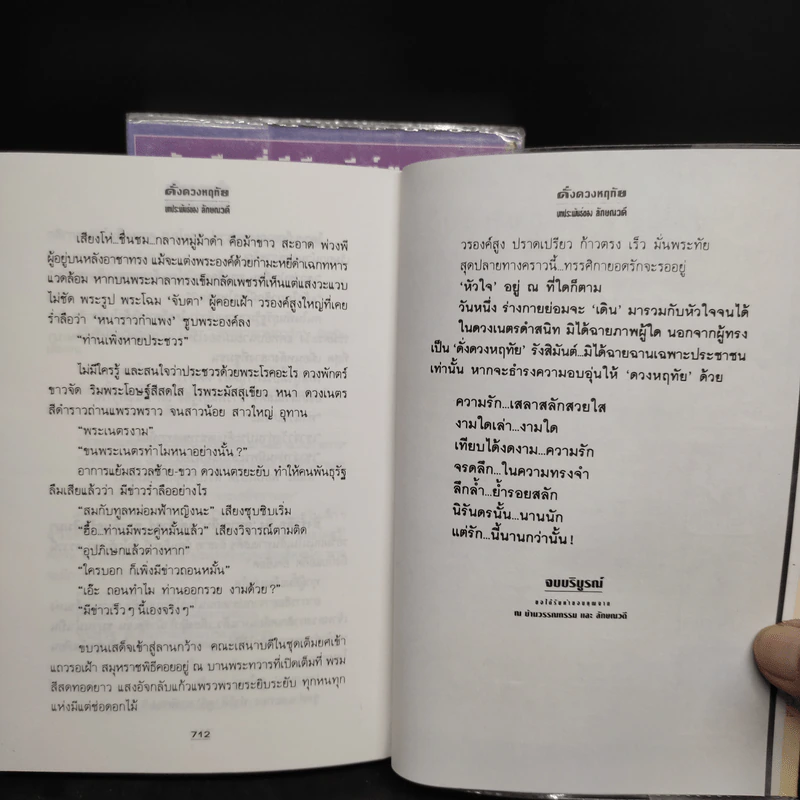 ดั่งดวงหฤทัย
บทประพันธ์ของ ลักษณวดี
เสียงโห่...ชื่นชม...กลางหมู่ม้าดำ คือม้าขาว สะอาด พ่วงพี
ผู้อยู่บนหลังอาชาทรง แม้จะแต่งพระองค์ด้วยกำมะหยี่ดำเฉกทหาร
แวดล้อม หากบนพระมาลาทรงเข็มกลัดเพชรที่เห็นแต่แสงวะแวบ
ไม่ชัด พระรูป พระโฉม ‘จับตา’ ผู้คอยเฝ้า วรองค์สูงใหญ่ที่เคย
ร่ำลือว่า ‘หนาราวกำแพง’ ซูบพระองค์ลง
“ท่านเพิ่งหายประชวร”
ไม่มีใครรู้ และสนใจว่าประชวรด้วยพระโรคอะไร ดวงพักตร์
ขาวจัด ริมพระโอษฐ์สีสดใส ไรพระมัสสุเขียว หนา ดวงเนตร
สีดำราวถ่านแพรวพราว จนสาวน้อย สาวใหญ่ อุทาน
“พระเนตรงาม”
“ขนพระเนตรทำไมหนาอย่างนั้น?”
อาการแย้มสรวลซ้าย-ขวา ดวงเนตรยะยับ ทำให้คนพันธุรัฐ
ลืมเสียแล้วว่า มีข่าวร่ำลืออย่างไร
“สมกับทูลหม่อมฟ้าหญิงนะ” เสียงซุบซิบเริ่ม
“ฮื้อ...ท่านมีพระคู่หมั้นแล้ว” เสียงวิจารณ์ตามติด
“อุปภิเษกแล้วต่างหาก”
“ใครบอก ก็เพิ่งมีข่าวถอนหมั้น”
“เอ๊ะ ถอนทำไม ท่านออกรวย งามด้วย?”
“มีข่าวเร็วๆ นี้เองจริงๆ”
ขบวนเสด็จเข้าสู่ลานกว้าง คณะเสนาบดีในชุดเต็มยศเข้า
แถวรอเฝ้า สมุหราชพิธีคอยอยู่ ณ บานพระทวารที่เปิดเต็มที่ พรม
สีสดทอดยาว แสงอัจกลับแก้วแพรวพรายระยิบระยับ ทุกหนทุก
แห่งมีแต่ช่อดอกไม้
712
ดั่งดวงหฤทัย
บทประพันธ์ของ ลักษณวดี
วรองค์สูง ปราดเปรียว ก้าวตรง เร็ว มั่นพระทัย
สุดปลายทางคราวนี้...ทรรศิกายอดรักจะรออยู่
‘หัวใจ’ อยู่ ณ ที่ใดก็ตาม
วันหนึ่ง ร่างกายย่อมจะ ‘เดิน’ มารวมกับหัวใจจนได้
ในดวงเนตรดำสนิท มิได้ฉายภาพผู้ใด นอกจากผู้ทรง
เป็น ‘ดั่งดวงหฤทัย’ รังสิมันต์...มิได้ฉายฉานเฉพาะประชาชน
เท่านั้น หากจะธำรงความอบอุ่นให้ ‘ดวงหฤทัย’ ด้วย
ความรัก...เสลาสลักสวยใส
งามใดเล่า...งามใด
เทียบได้งดงาม...ความรัก
จรดลึก...ในความทรงจำ
ลึกล้ำ...ย้ำรอยสลัก
นิรันดรนั้น...นานนัก
แต่รัก...นี้นานกว่านั้น!
จบบริบูรณ์
ขอได้รับคำขอบคุณจาก
ณ บ้านวรรณกรรม และ ลักษณวดี